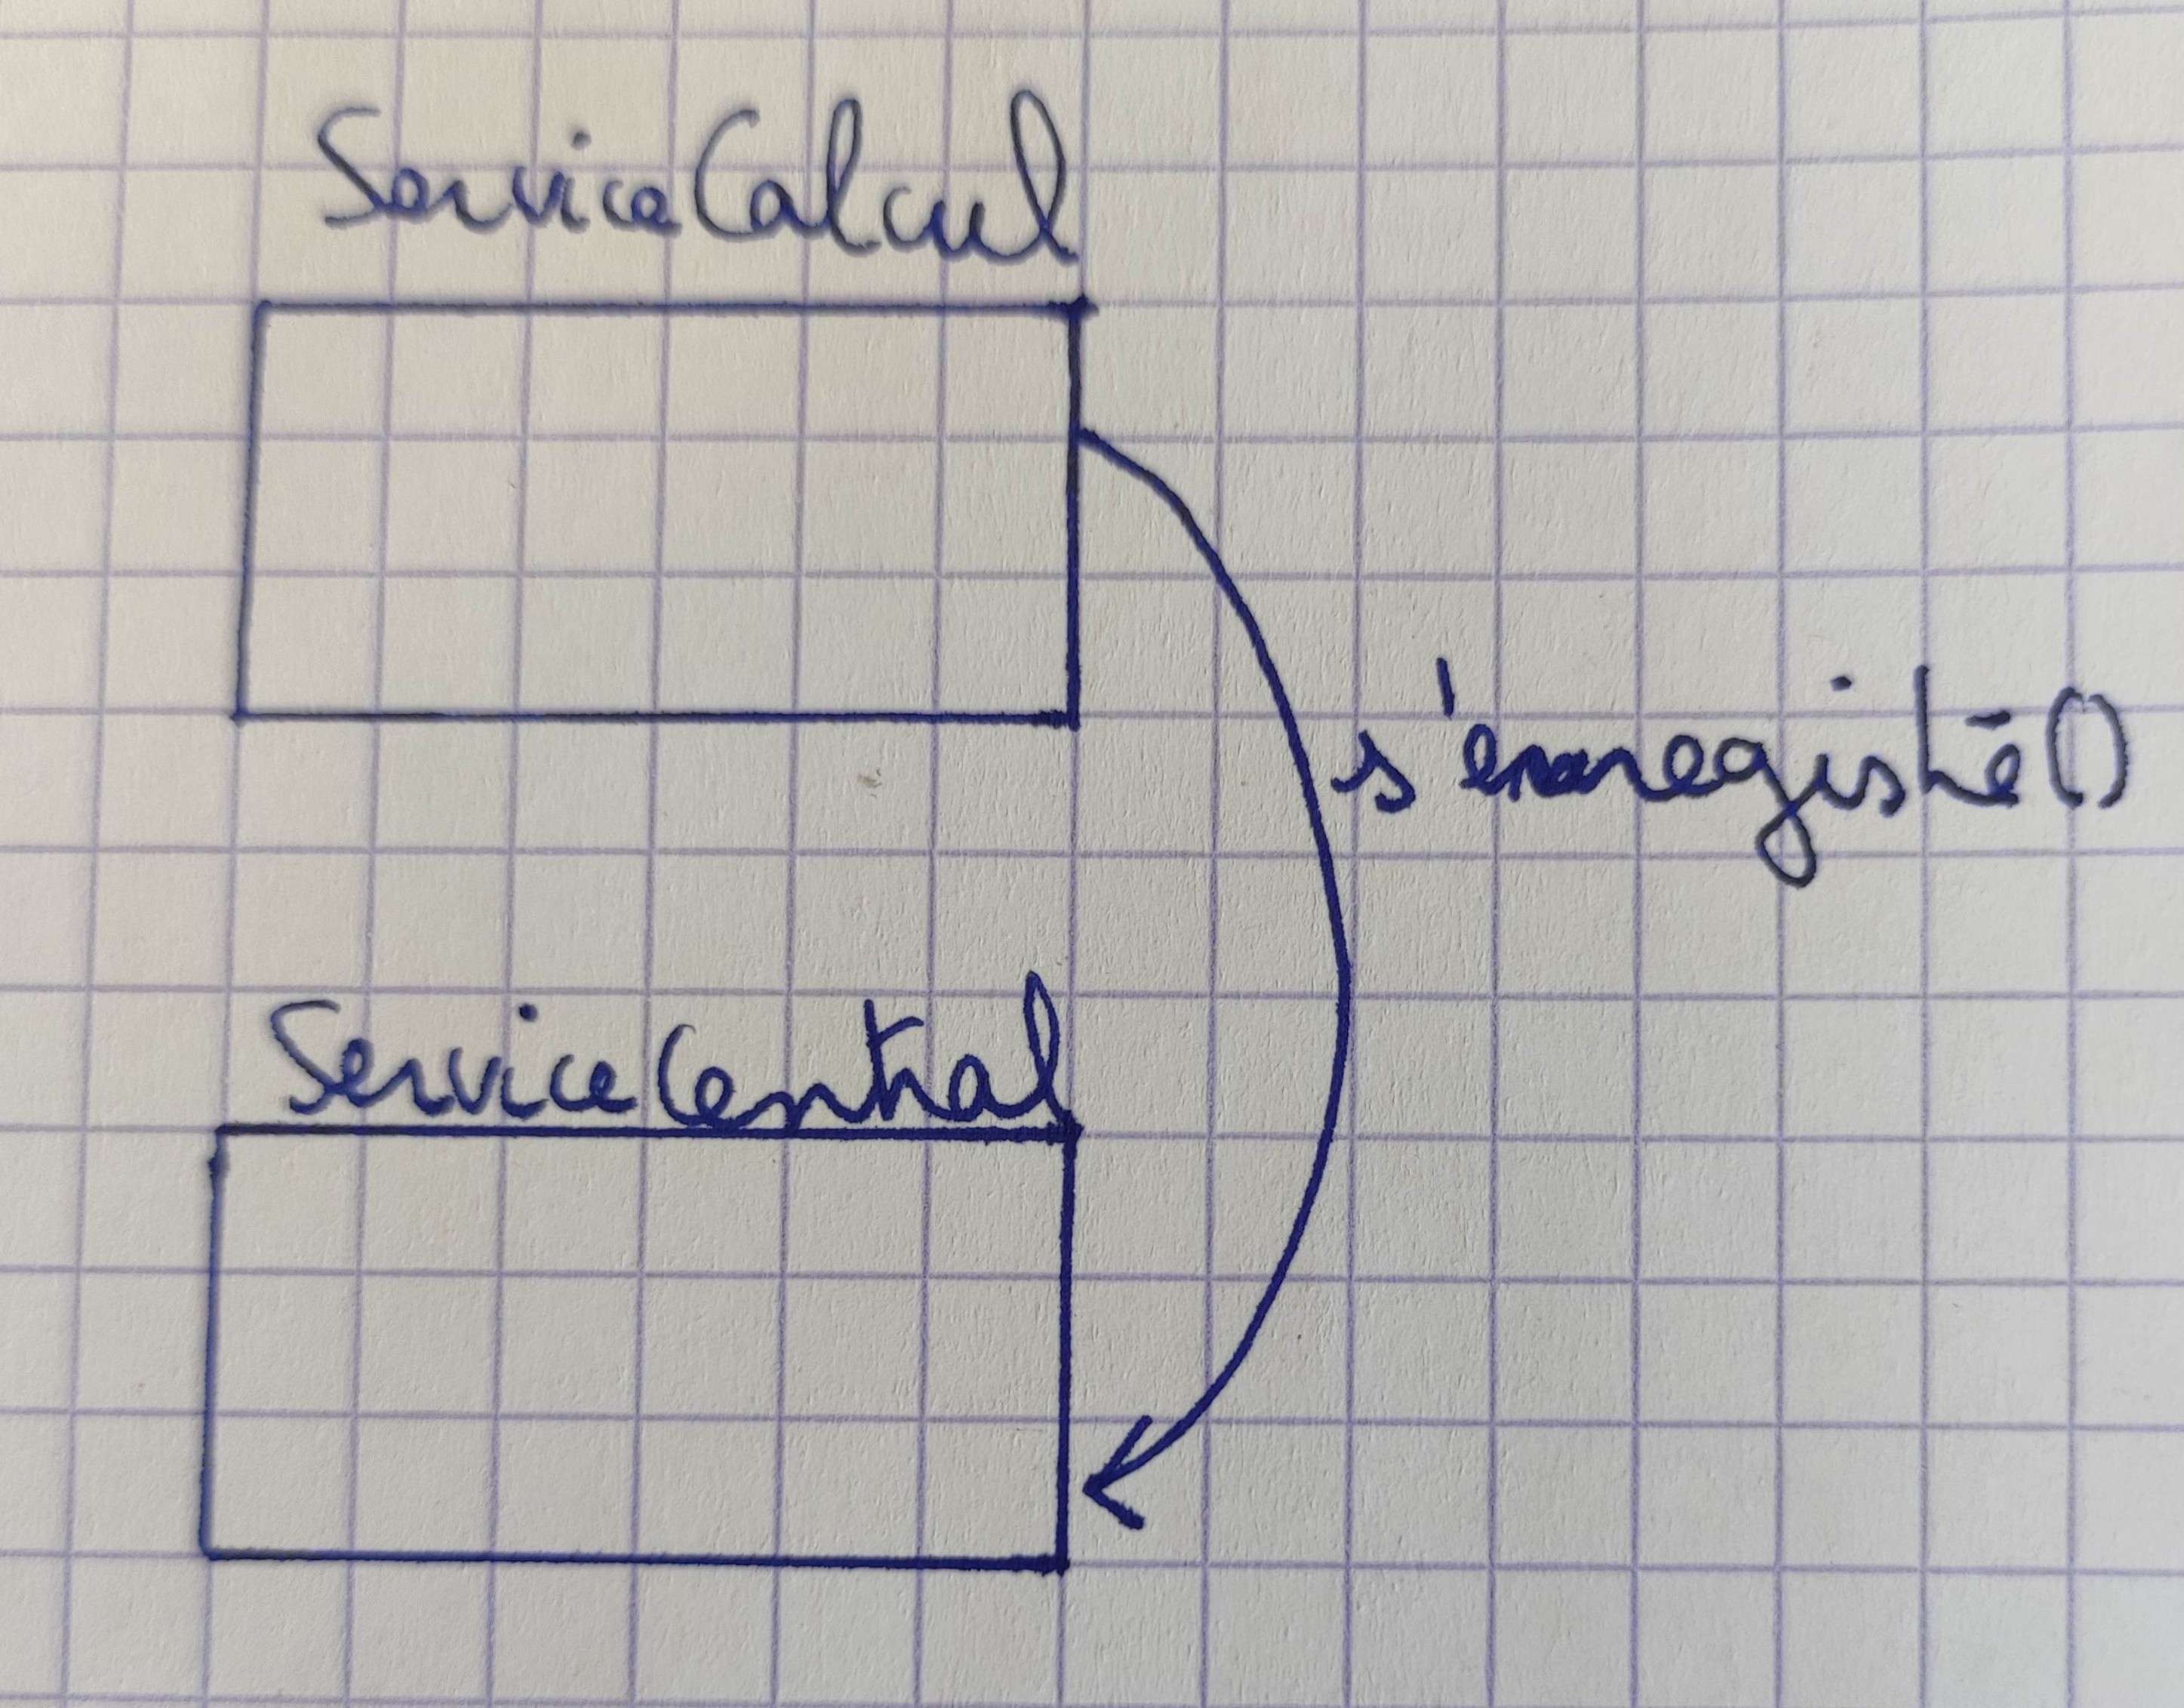 ServiceCalcul
s'enregistré()
ServiceCentral